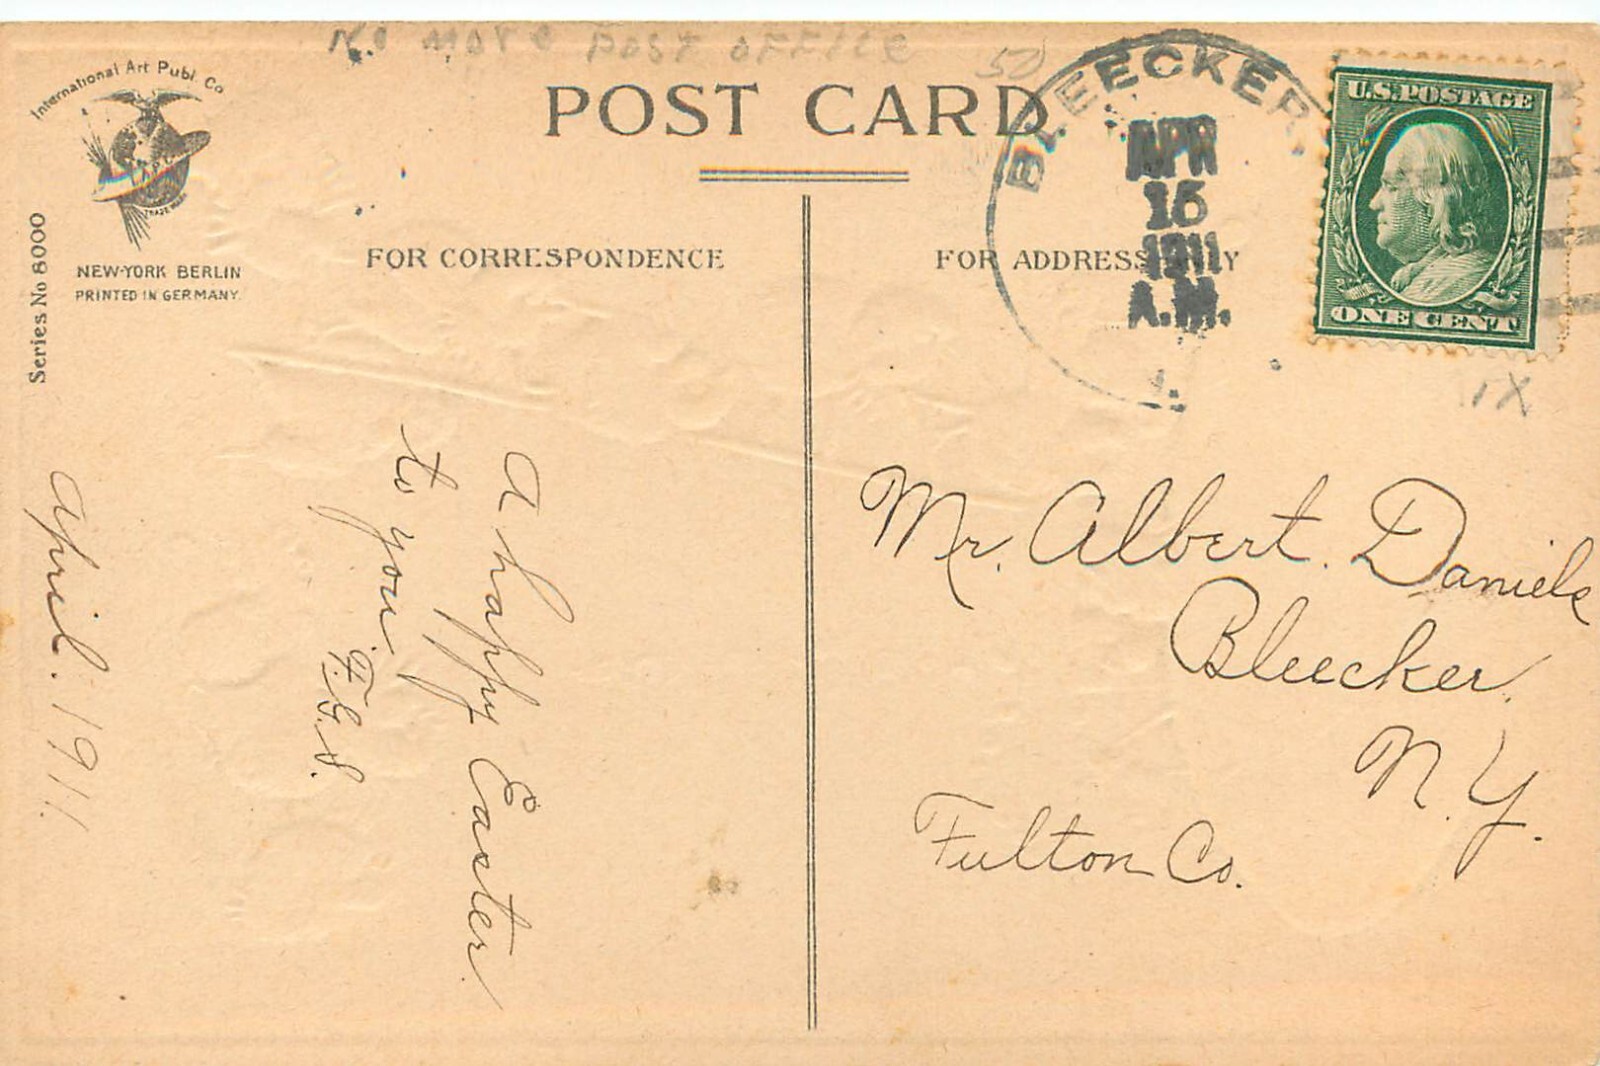 No more Post Office
50
International Art Publ. Co
TRADE MARK
NEW-YORK BERLIN
PRINTED IN GERMANY.
Series No 8000
POST CARD
FOR CORRESPONDENCE
FOR ADDRESS ONLY
BLEECKER,
APR
15
1911
A.M.
U.S. POSTAGE
ONE CENT
1X
A happy Easter
to you
F.G.S.
April. 1911.
Mr. Albert. Daniels
Bleecker.
N.Y.
Fulton Co.